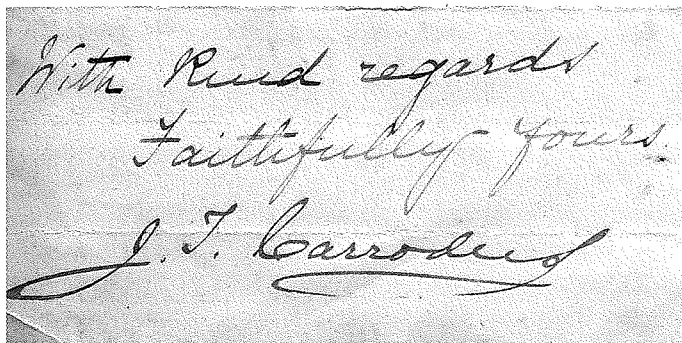 With Kind regards
Faithfully Yours.
J. T. Carrodus